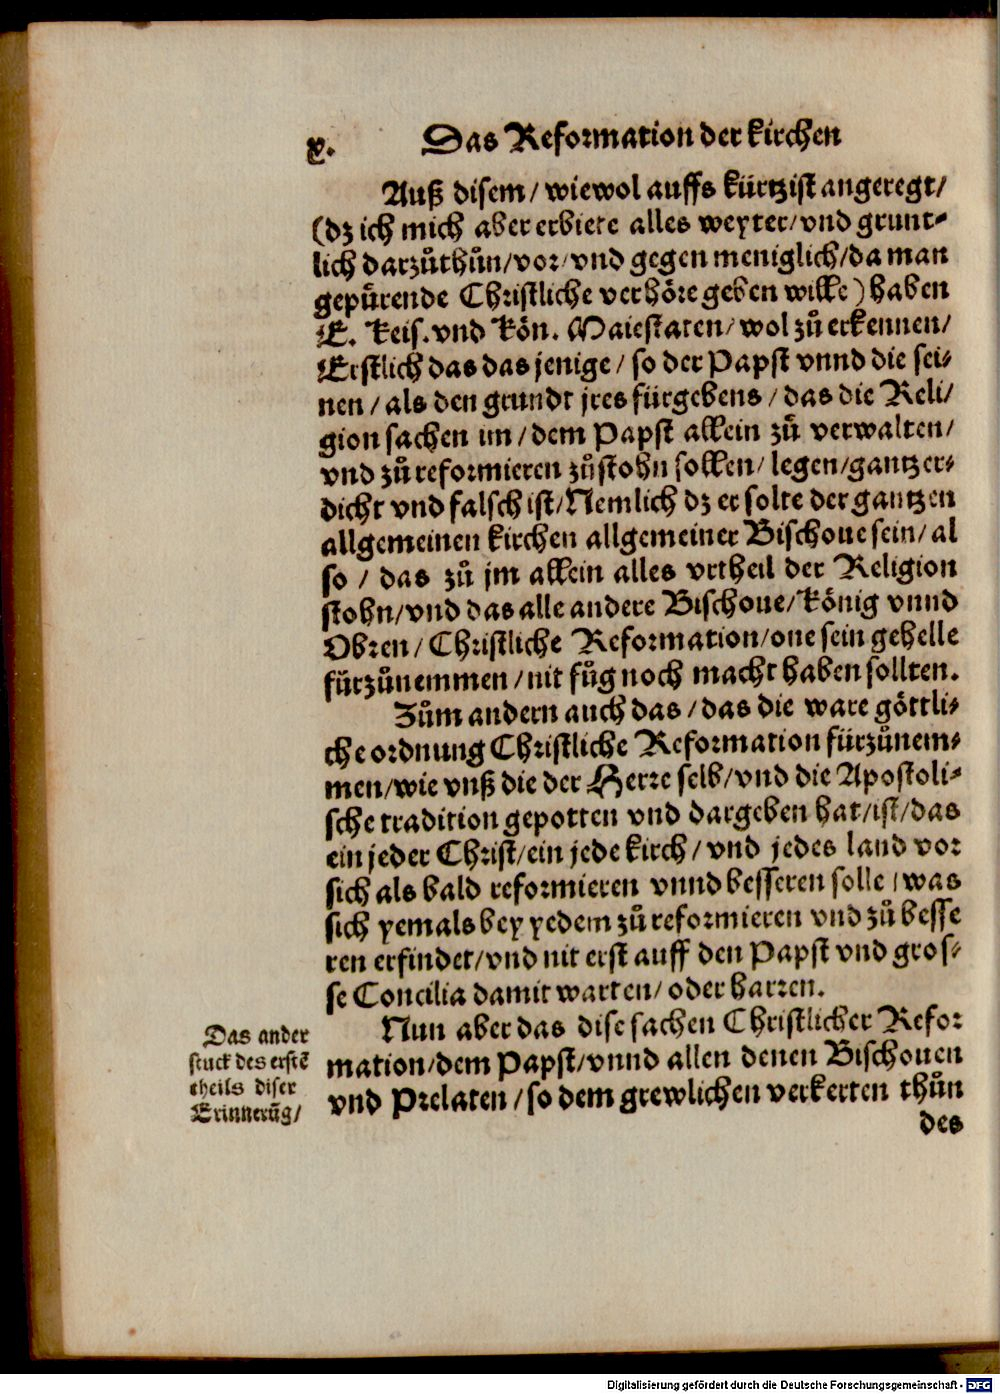 x. Das Reformation der kirchen
Auß disem / wiewol auffs kürtzist angeregt /
(dz ich mich aber erbiete alles weyter / vnd grunt-
lich darzůthůn / vor / vnd gegen meniglich / da man
gepürende Christliche verhöre geben wille) haben
E. Keis. vnd Kön. Maiestaten / wol zů erkennen /
Erstlich das das jenige / so der Papst vnnd die sei-
nen / als den grundt jres fürgebens / das die Reli /
gion sachen im / dem Papst allein zů verwalten /
vnd zů reformieren zůstohn sollen / legen / gantz er-
dicht vnd falsch ist / Nemlich dz er solte der gantzen
allgemeinen kirchen allgemeiner Bischoue sein / al
so / das zů jm allein alles vrtheil der Religion
stohn / vnd das alle andere Bischoue / König vnnd
Obren / Christliche Reformation / one sein gehelle
fürzůnemmen / nit fůg noch macht haben sollten.
Zům andern auch das / das die ware göttli-
che ordnung Christliche Reformation fürzůnem-
men / wie vnß die der Herre selb / vnd die Apostoli-
sche tradition gepotten vnd dargeben hat / ist / das
ein jeder Christ / ein jede kirch / vnd jedes land vor
sich als bald reformieren vnnd besseren solle / was
sich yemals bey yedem zů reformieren vnd zů besse
ren erfindet / vnd nit erst auff den Papst vnd gros-
se Concilia damit warten / oder harren.
Nun aber das dise sachen Christlicher Refor
mation / dem Papst / vnnd allen denen Bischouen
vnd Prelaten / so dem grewlichen verkerten thůn
des
Das ander
stuck des erstē
theils diser
Erinnerūg /
Digitalisierung gefördert durch die Deutsche Forschungsgemeinschaft - DFG